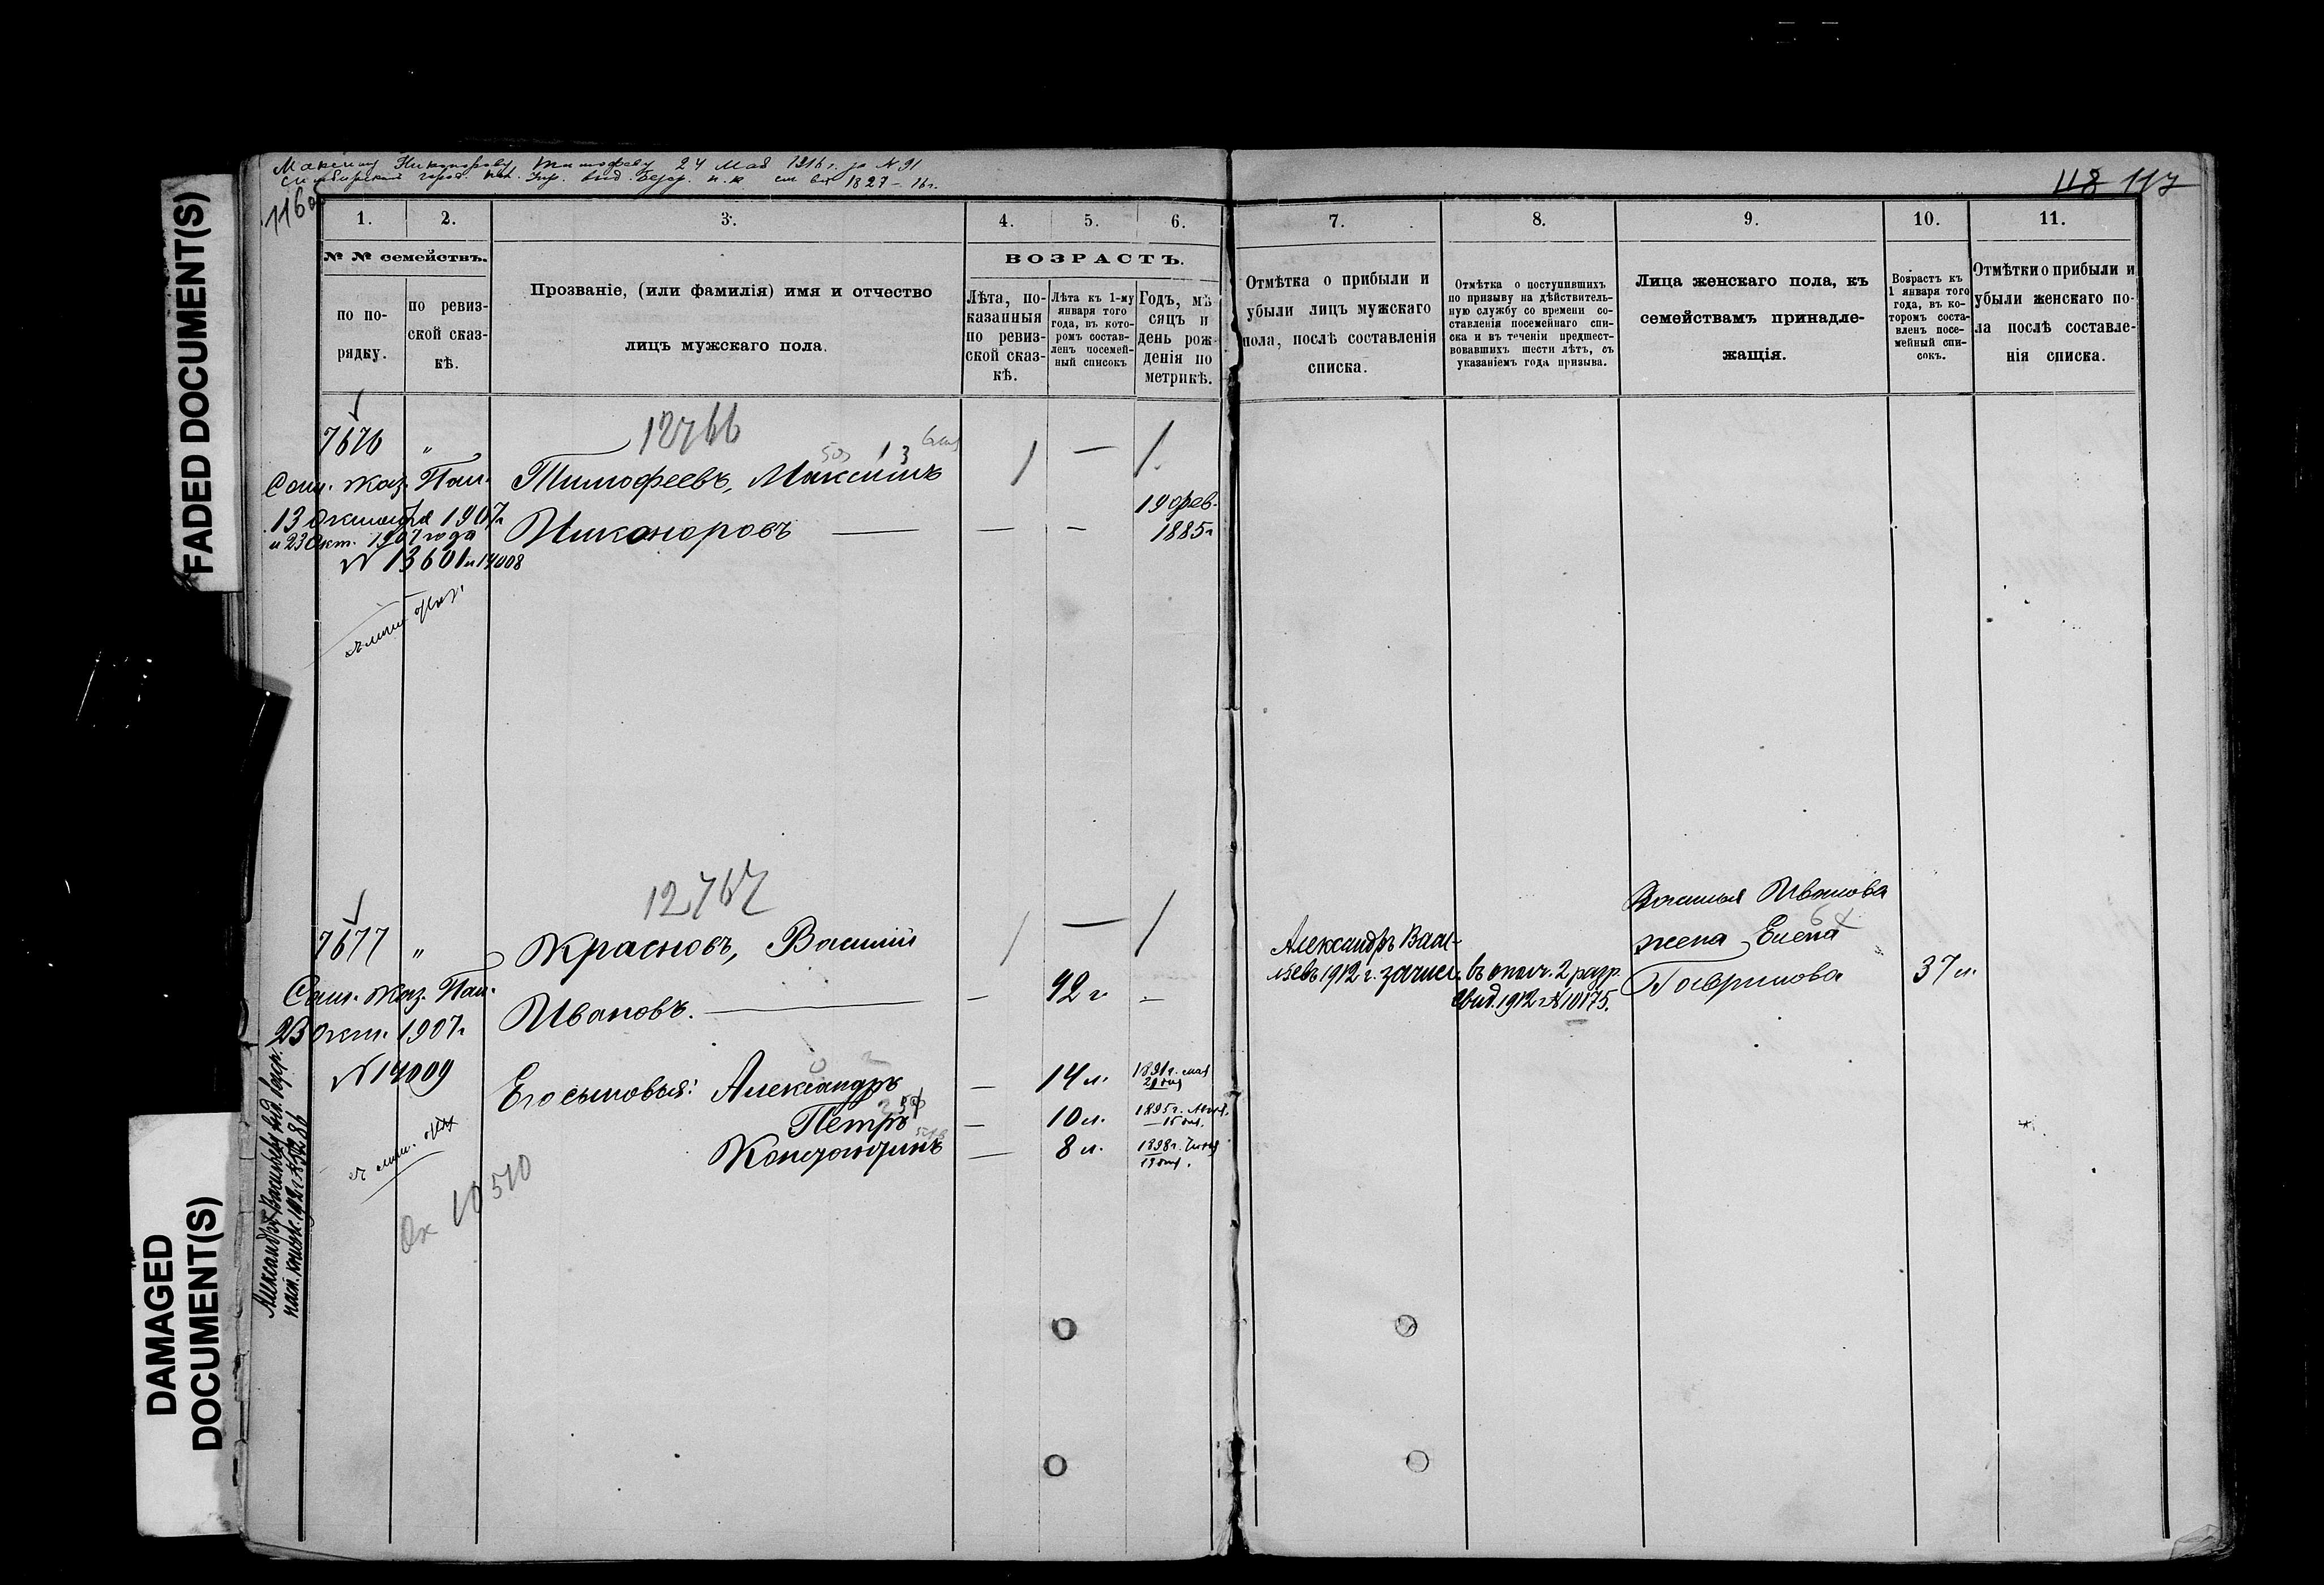 Максиму Никонорову Тимофееву 24 Мая 1916 г. за № 91
Симбирской город. выд. 1827 — 16 г.
116 об
118 117
FADED DOCUMENT(S)
DAMAGED
DOCUMENT(S)
1. 2. 3. 4. 5. 6. 7. 8. 9. 10. 11.
№ № семействъ.
по по-
рядку.
по ревиз-
ской сказ-
кѣ.
Прозваніе, (или фамилія) имя и отчество
лицъ мужскаго пола.
ВОЗРАСТЪ.
Лѣта, по-
казанныя
по ревиз-
ской сказ-
кѣ.
Лѣта къ 1-му
января того
года, въ кото-
ромъ состав-
ленъ посемей-
ный списокъ
Годъ, мѣ
сяцъ и
день рож-
денія по
метрикѣ.
Отмѣтка о прибыли и
убыли лицъ мужскаго
пола, послѣ составленія
списка.
Отмѣтка о поступившихъ
по призыву на дѣйствитель-
ную службу со времени со-
ставленія посемейнаго спи-
ска и въ теченіи предшест-
вовавшихъ шести лѣтъ, съ
указаніемъ года призыва.
Лица женскаго пола, къ
семействамъ принадле-
жащія.
Возрастъ къ
1 января того
года, въ ко-
торомъ соста-
вленъ посе-
мейный спи-
сокъ.
Отмѣтки о прибыли и
убыли женскаго по-
ла послѣ составле-
нія списка.
12766
7676 "
Сам. Каз. Пал.
13 Октября 1907 г.
и 23 Окт. 1907 года
№ 13601 и 14008
Тимофеевъ, Максимъ
Никоноровъ — — —
19 фев.
1885 г.
12767
7677 "
Сам. Каз. Пал.
23 Окт. 1907 г.
№ 14009
Красновъ, Василій
Ивановъ. — — 42 г. —
Его сыновья: Александръ — 14 л. 1891 г. мая
Петръ — 10 л. 1895 г.
15 дня.
Константинъ — 8 л. 1898 г.
19 дня.
10510
Александръ Васи-
льевъ 1912 г. зачисл. въ ополч. 2 разр.
Свид. 1912 г. № 10175.
Василья Иванова
жена Елена
Гаврилова 37 л.
Александру Васильеву выд.
пасп. книжк. 1912 г. №